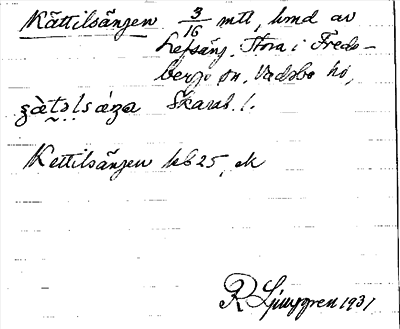 Kättilsängen 3/16 mtl, hmd av
Lefsäng. Stora i Freds-
bergs sn, Vadsbo hd,
Skarab. l.
Kettilsängen kb 25, ek
R Ljunggren 1931